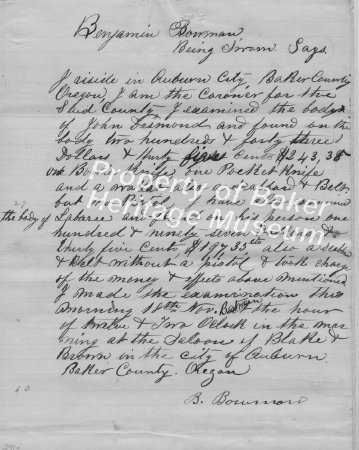 Benjamin Bowman
Being Sworn Says.
I riside in Auburn City Baker County
Oregon, I am the Coroner for the
Said County I examined the body
of John Desmond and found on the
body two hundreds & forty three
Dollars & thirty five Cents $243,35
one Bowie Knife one Pocket Knife
and a & Belt
but Pistol I have
the body of Labarse and his person one
hundred & ninety seven &
thirty five Cents $197 35 also a
& Belt without a pistol & took charge
of the money & effects above mentioned
I made the examination this
morning 18th Nov. the hour
of & Two Oclock in the mor
ning at the Saloon of Blake &
Brown in the City of Auburn
Baker County. Oregon
B. Bowman
Property of Baker
Heritage Museum